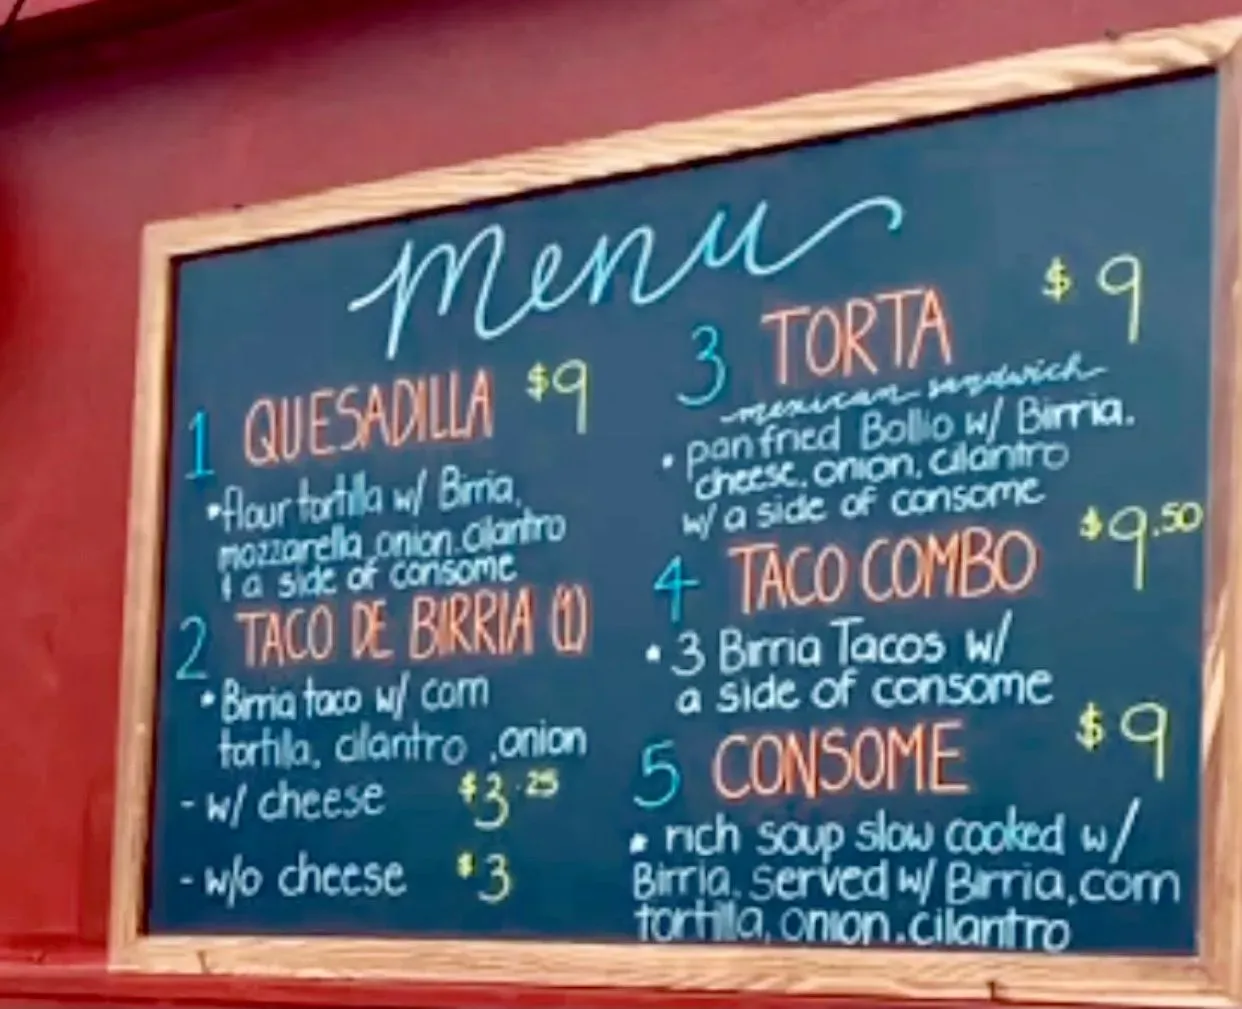 Menu
1 QUESADILLA $9
•flour tortilla w/ Birria,
mozzarella, onion, cilantro
& a side of consome
2 TACO DE BIRRIA (1)
•Birria taco w/ corn
tortilla, cilantro, onion
- w/ cheese $3.25
- w/o cheese $3
3 TORTA $9
mexican sandwich
• pan fried Bollio w/ Birria,
cheese, onion, cilantro
w/ a side of consome
4 TACO COMBO $9.50
• 3 Birria Tacos w/
a side of consome
5 CONSOME $9
• rich soup slow cooked w/
Birria, served w/ Birria, corn
tortilla, onion, cilantro